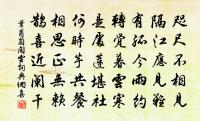 咫尺不相見
隔江應見難
有孤今雨約
轉覺暮雲寒
是處蓮堪社
何時芋共餐
相思正無賴
鵲喜近闌干